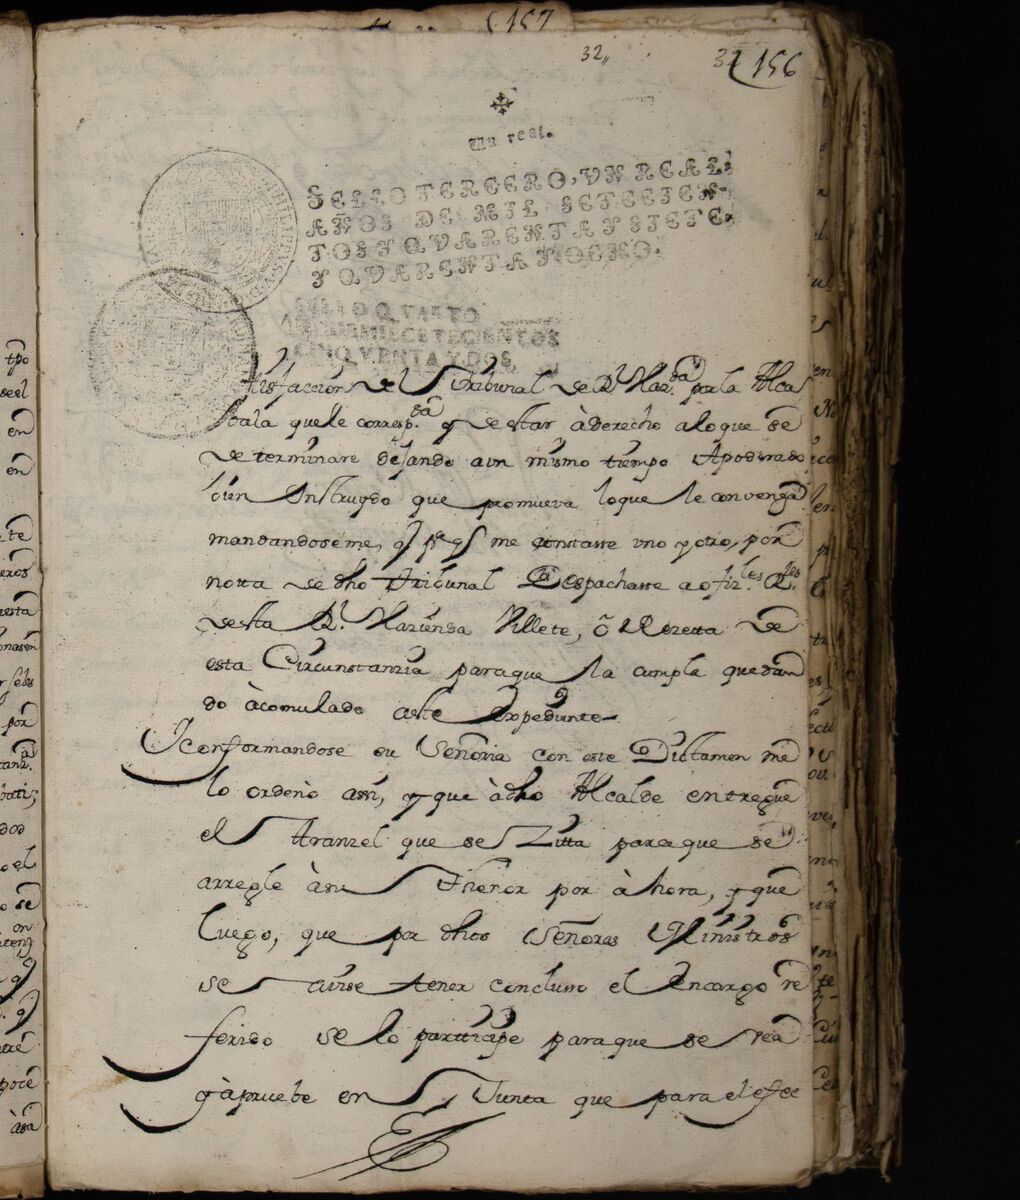 157
32,, 32 156
Un real.
SELLO TERCERO, VN REAL,
AÑOS DE MIL SETECIEN-
TOS Y QVARENTA Y SIETE,
Y QVARENTA Y OCHO.
SELLO QVARTO
MIL SETECIENTOS
CINQVENTA Y DOS,
tisfaccion del Tribunal de Rl. Hazda. por la Alca
bala que le correspda. y de estar à derecho a lo que se
determinare dejando a un mismo tiempo Apoderado
bien Instruydo que promueva lo que le convenga
mandandoseme, q pa. q si me constasse uno y otro, por
notta de dho Tribunal Despachasse a ofizles. Rles.
de sta Rl. Hazienda Villete, ô Rezetta de
esta Circunstanzia para que la cumpla quedan
do àcomulado a este Expediente
Y conformandose su Señoria con este Dictamen me
lo ordeno assi, y que à dho Alcalde entregue
el Aranzel que se Zitta para que se
arregle à su Thenor por àhora, y que
luego, que por dhos Señores Ministros
se avise tener concluso el encargo re
ferido se lo partticipe para que se vea
y àpruebe en Junta que para el efec